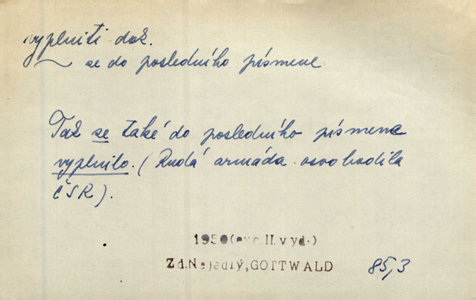 vyplniti dok.
~ se do posledního písmene
Tak se také do posledního písmena
vyplnilo. (Rudá armáda osvobodila
ČSR).
1950 (exc. II. vyd.)
Zd. Nejedlý, GOTTWALD 85,3